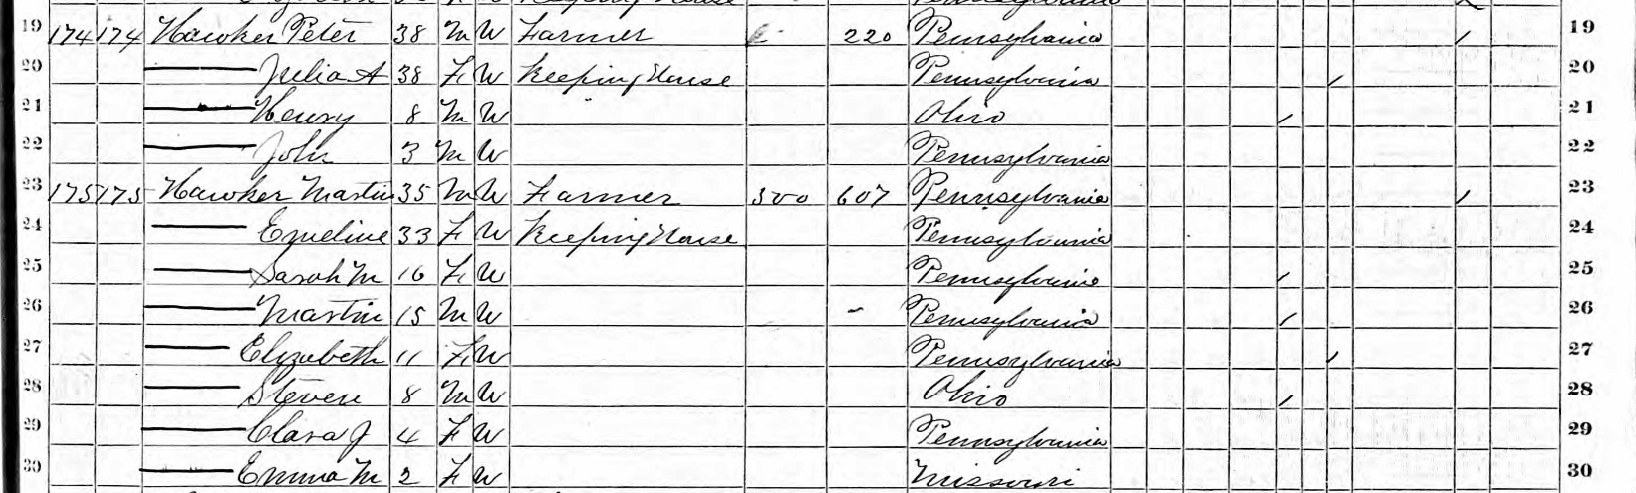 19 174 174 Hawker Peter 38 M W Farmer 220 Pennsylvania 19
20 Julia A 38 F W Keeping House Pennsylvania 20
21 Henry 8 M W Ohio 21
22 John 3 M W Pennsylvania 22
23 175 175 Hawker Martin 35 M W Farmer 500 607 Pennsylvania 23
24 Emeline 33 F W Keeping House Pennsylvania 24
25 Sarah M 16 F W Pennsylvania 25
26 Martin 15 M W Pennsylvania 26
27 Elizabeth 11 F W Pennsylvania 27
28 Steven 8 M W Ohio 28
29 Clara J 4 F W Pennsylvania 29
30 Emma M 2 F W Missouri 30